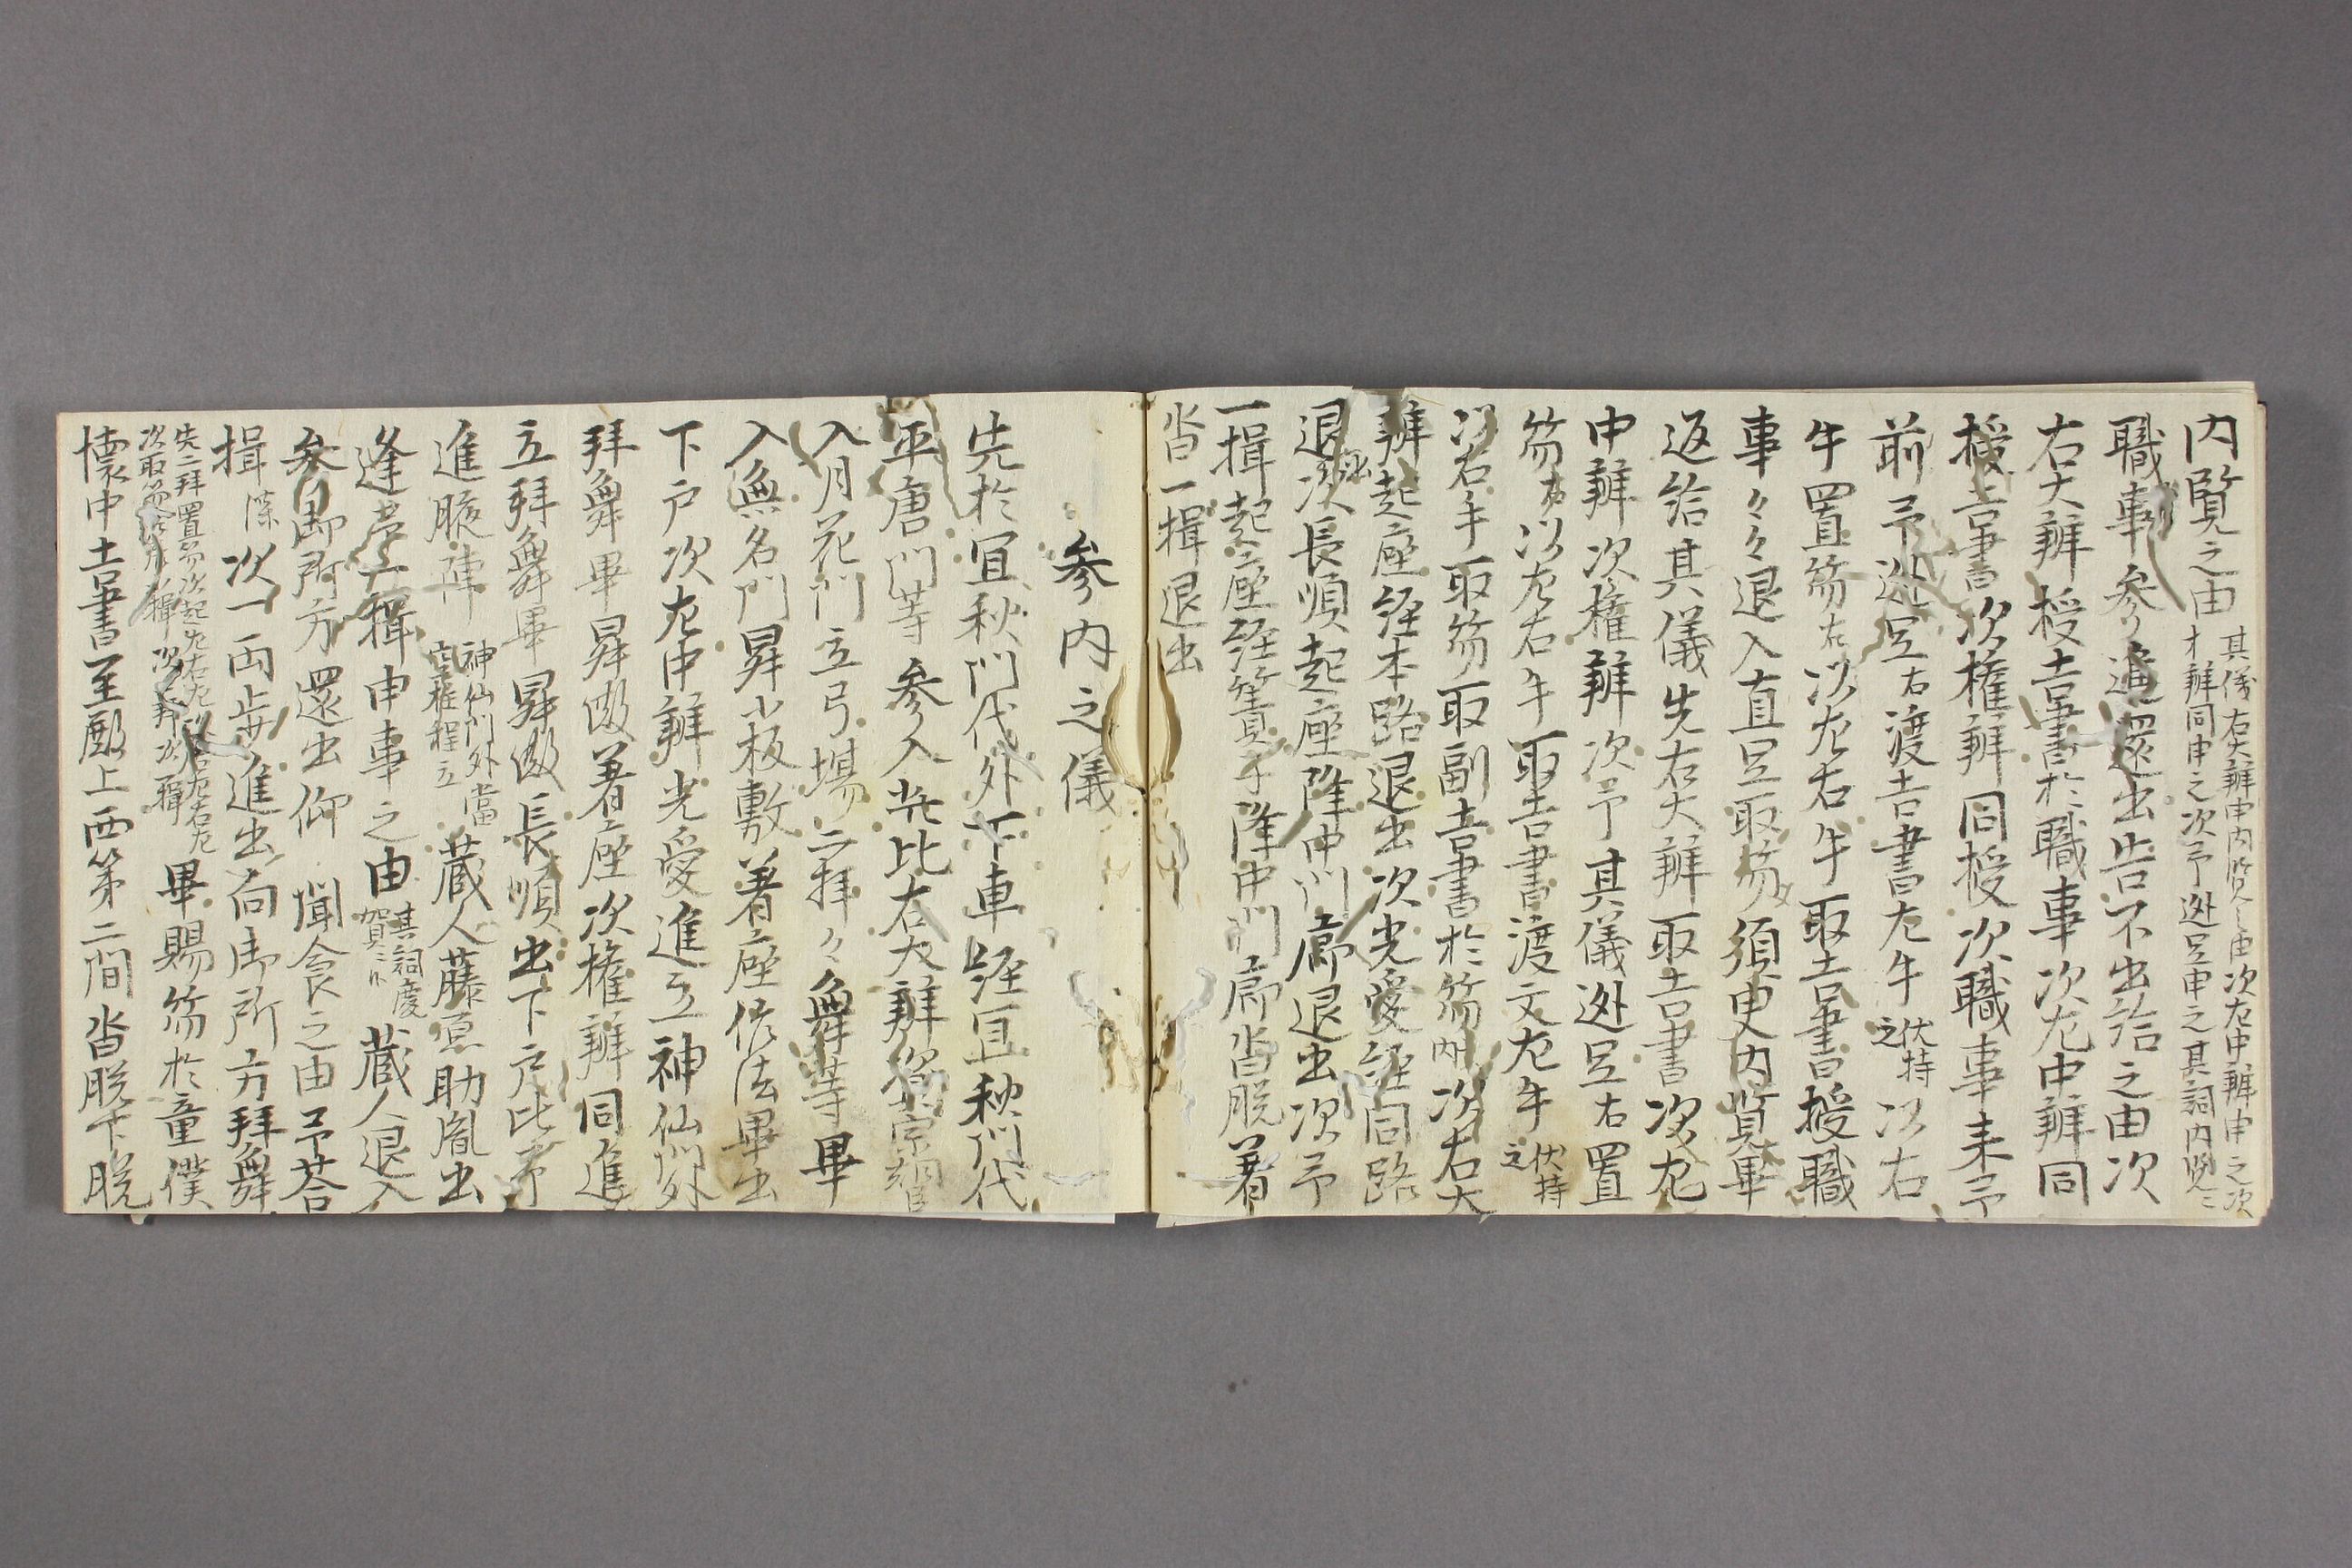 内覧之由
其儀右大辨申内覧之由次左中辨申之次
才辨同申之次予逃足申之其詞内覧云々
職事参進還出告不出給之由次
右大辨授吉書於職事次左中辨同
授吉書次權辨同授次職事来予
前予逃足右渡吉書左手
伏持之
以右
手置笏左以左右手取吉書授職
事々々退入直足取笏須臾内覧畢
返給其儀先右大辨取吉書次左
中辨次權辨次予其儀逃足右置
笏右以左右手取吉書渡文左手
伏持之
以右手取笏取副吉書於笏内次右大
辨起座経本路退出次光愛経同路
退次長順起座降中門廊退出次予
一揖起座経簀子降中門廊沓脱著
沓一揖退出
参内之儀
先於宜秋門代外下車経宜秋門代
平唐門等参入先比右大辨
入月花門立弓場二拜々舞等畢
入無名門昇小板敷著座作法畢出
下戸次左中辨光愛進立神仙門外
拜舞畢昇殿著座次權辨同進
立拜舞畢昇殿長順出下戸比予
進腋陣
神仙門外當
立
蔵人藤原助胤出
逢一揖申事之由
其詞慶
賀云々
蔵人退入
矣御所方還出仰聞食之由予荅
揖深次一両歩進出向御所方拜舞
先二拜置笏次起左右左
畢賜笏於童僕
懐中吉書至殿上西第二間沓脱下脱